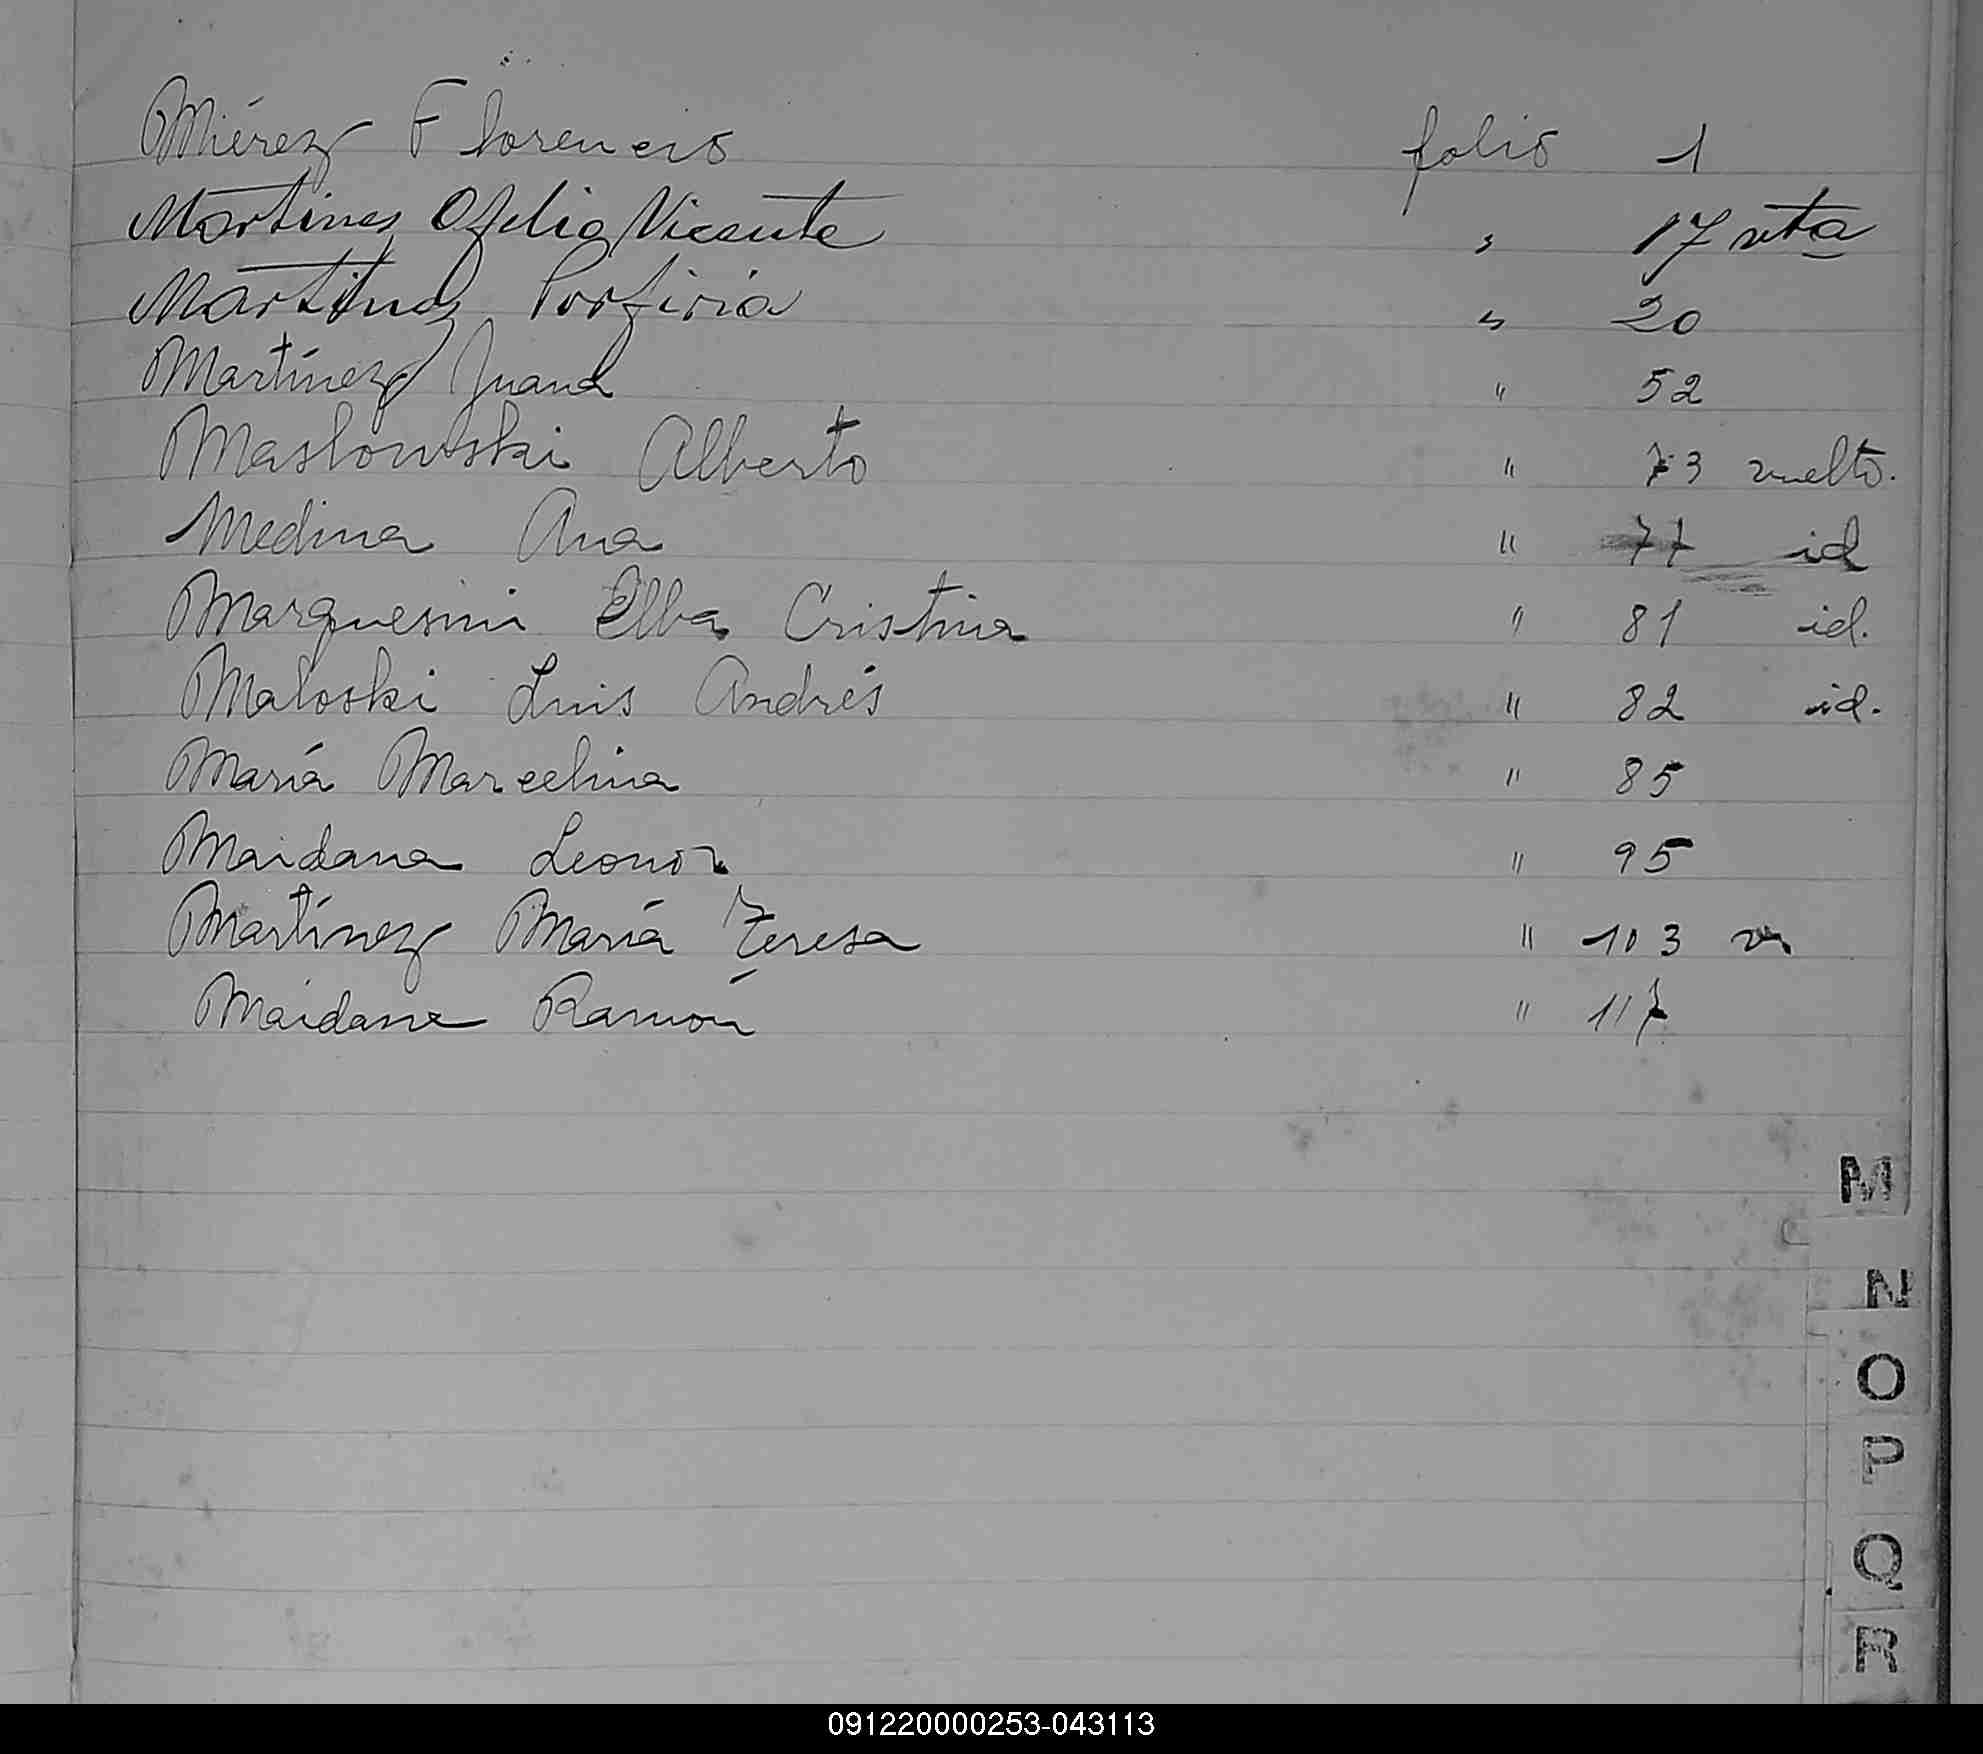 Miérez Florencio folio 1
Martines Ofelio Vicente " 17 vta
Martines Porfiria " 20
Martínez Juana " 52
Maslowski Alberto " 73 vuelto.
Medina Ana " 77 id
Marquesini Elba Cristina " 81 id.
Maloski Luis Andrés " 82 id.
María Marcelina " 85
Maidana Leonor " 95
Martínez María Teresa " 103 v
Maidana Ramón " 117
M
N
O
P
Q
R
091220000253-043113